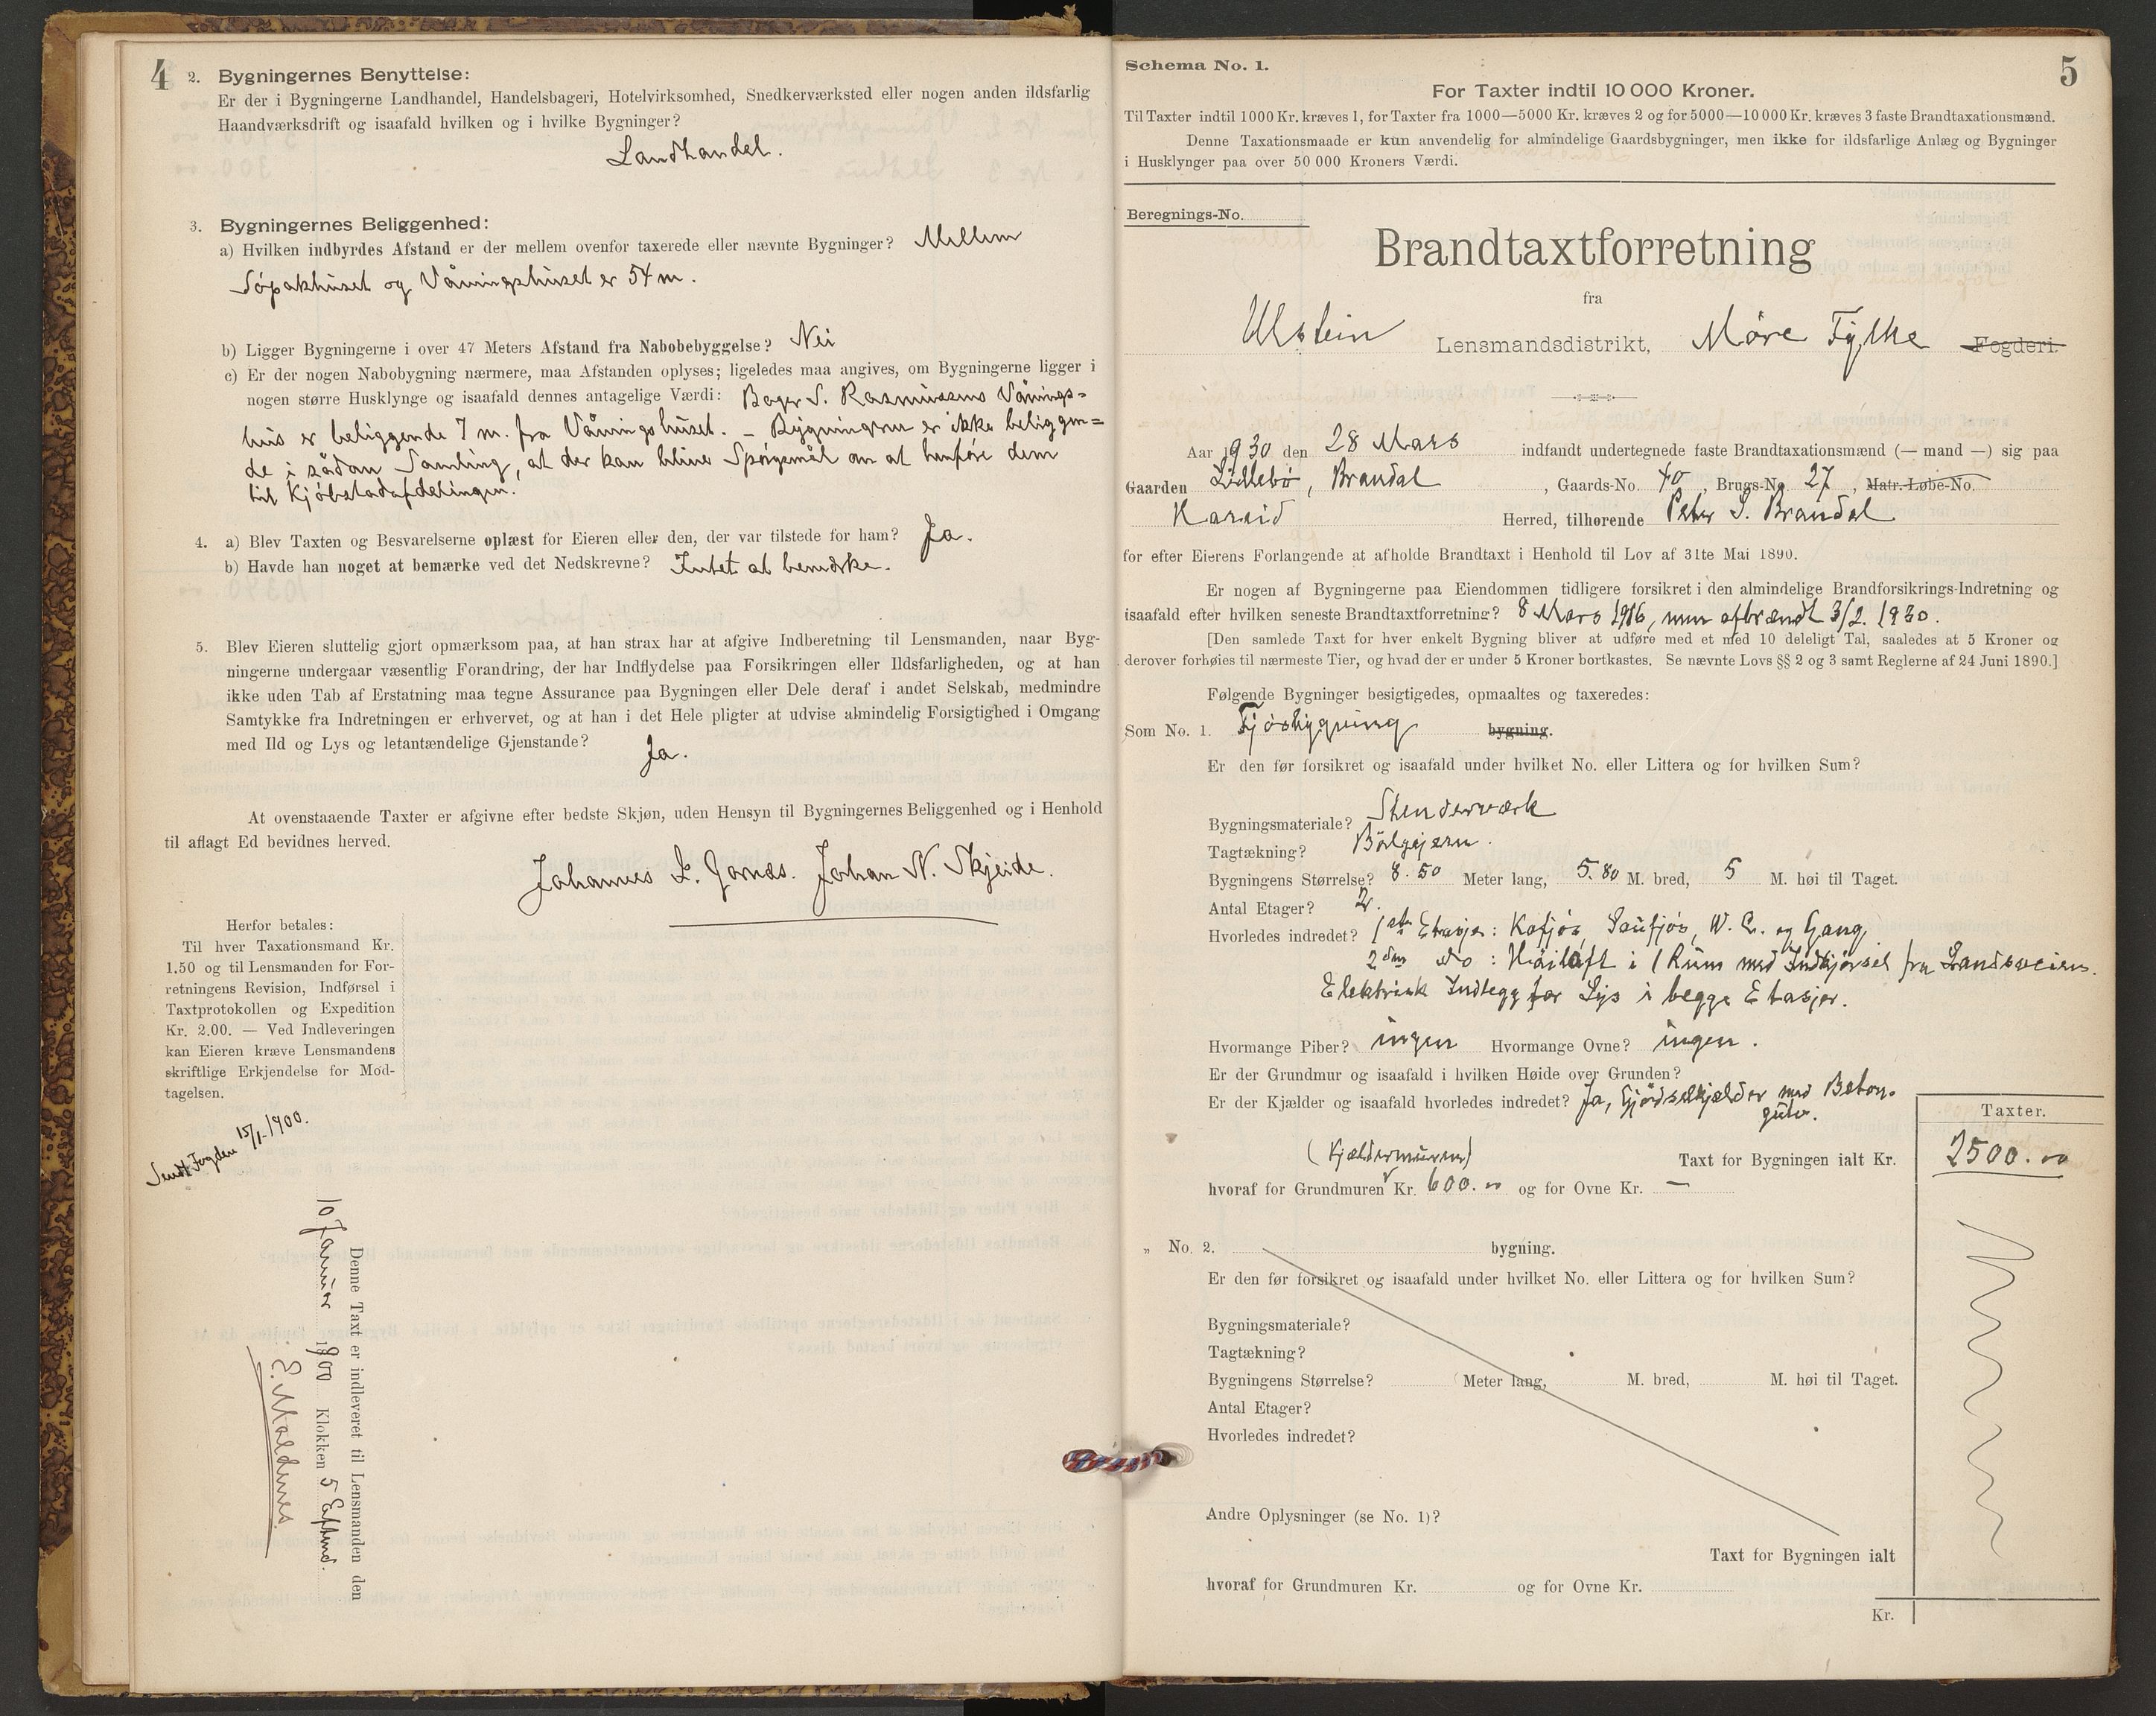 4
2. Bygningernes Benyttelse:
Er der i Bygningerne Landhandel, Handelsbageri, Hotelvirksomhed, Snedkerværksted eller nogen anden ildsfarlig
Haandværksdrift og isaafald hvilken og i hvilke Bygninger?
Landhandel.
3. Bygningernes Beliggenhed:
a) Hvilken indbyrdes Afstand er der mellem ovenfor taxerede eller nævnte Bygninger? Mellem
Söpakhuset og Våningshuset er 54 m.
b) Ligger Bygningerne i over 47 Meters Afstand fra Nabobebyggelse? Nei
c) Er der nogen Nabobygning nærmere, maa Afstanden oplyses; ligeledes maa angives, om Bygningerne ligger i
nogen større Husklynge og isaafald dennes antagelige Værdi: Bager S. Rasmussens Vånings-
hus er beliggende 7 m. fra Våningshuset. - Bygningerne er ikke beliggen=
de i sådan Samling, at der kan blive Spörgsmål om at henföre dem
til Kjöbstadafdelingen.
4. a) Blev Taxten og Besvarelserne oplæst for Eieren eller den, der var tilstede for ham? Ja.
b) Havde han noget at bemærke ved det Nedskrevne? Intet at bemærke.
5. Blev Eieren sluttelig gjort opmærksom paa, at han strax har at afgive Indberetning til Lensmanden, naar Byg-
ningerne undergaar væsentlig Forandring, der har Indflydelse paa Forsikringen eller Ildsfarligheden, og at han
ikke uden Tab af Erstatning maa tegne Assurance paa Bygningen eller Dele deraf i andet Selskab, medmindre
Samtykke fra Indretningen er erhvervet, og at han i det Hele pligter at udvise almindelig Forsigtighed i Omgang
med Ild og Lys og letantændelige Gjenstande?
Ja.
At ovenstaaende Taxter er afgivne efter bedste Skjøn, uden Hensyn til Bygningernes Beliggenhed og i Henhold
til aflagt Ed bevidnes herved.
Johannes L. Johan N. Skjeide.
Herfor betales:
Til hver Taxationsmand Kr.
1.50 og til Lensmanden for For-
retningens Revision, Indførsel i
Taxtprotokollen og Expedition
Kr. 2.00. — Ved Indleveringen
kan Eieren kræve Lensmandens
skriftlige Erkjendelse for Mod-
tagelsen.
Sendt Fogden 15/1-1900.
Denne Taxt er indleveret til Lensmanden den
10 Januar 1900 Klokken 5 Eftmd.
E. Maldenes.
Schema No. 1.
5
For Taxter indtil 10 000 Kroner.
Til Taxter indtil 1000 Kr. kræves 1, for Taxter fra 1000—5000 Kr. kræves 2 og for 5000—10 000 Kr. kræves 3 faste Brandtaxationsmænd.
Denne Taxationsmaade er kun anvendelig for almindelige Gaardsbygninger, men ikke for ildsfarlige Anlæg og Bygninger
i Husklynger paa over 50 000 Kroners Værdi.
Beregnings-No.
Brandtaxtforretning
fra
Ulstein Lensmandsdistrikt, Möre Fylke Fogderi.
Aar 1930 den 28 Mars indfandt undertegnede faste Brandtaxationsmænd (— mand —) sig paa
Gaarden Lillebö, Brandal, Gaards-No. 40, Brugs-No. 27, Matr.-Løbe-No.
Hareid Herred, tilhørende Peter S. Brandal
for efter Eierens Forlangende at afholde Brandtaxt i Henhold til Lov af 31te Mai 1890.
Er nogen af Bygningerne paa Eiendommen tidligere forsikret i den almindelige Brandforsikrings-Indretning og
isaafald efter hvilken seneste Brandtaxtforretning? 8 Mars 1916, men afbrændt 3/2. 1930.
[Den samlede Taxt for hver enkelt Bygning bliver at udføre med et med 10 deleligt Tal, saaledes at 5 Kroner og
derover forhøies til nærmeste Tier, og hvad der er under 5 Kroner bortkastes. Se nævnte Lovs §§ 2 og 3 samt Reglerne af 24 Juni 1890.]
Følgende Bygninger besigtigedes, opmaaltes og taxeredes:
Som No. 1. Fjösbygning bygning.
Er den før forsikret og isaafald under hvilket No. eller Littera og for hvilken Sum?
Bygningsmateriale? Stenderværk
Tagtækning? Bölgejern.
Bygningens Størrelse? 8.50 Meter lang, 5.80 M. bred, 5 M. høi til Taget.
Antal Etager? 2.
Hvorledes indredet? 1ste Etasje: Kofjös, Saufjös, W. C. og Gang.
2den do: Höiloft i 1 Rum med Indkjörsel fra Landsveien.
Elektrisk Indlegg for Lys i begge Etasjer.
Hvormange Piber? ingen Hvormange Ovne? ingen.
Er der Grundmur og isaafald i hvilken Høide over Grunden?
Er der Kjælder og isaafald hvorledes indredet? Ja, Gjödselkjælder med Beton-
gulv.
Taxter.
(Kjældermuren) Taxt for Bygningen ialt Kr. 2500.00
hvoraf for Grundmuren Kr. 600.00 og for Ovne Kr. —
„ No. 2. bygning.
Er den før forsikret og isaafald under hvilket No. eller Littera og for hvilken Sum?
Bygningsmateriale?
Tagtækning?
Bygningens Størrelse? Meter lang, M. bred, M. høi til Taget.
Antal Etager?
Hvorledes indredet?
Andre Oplysninger (se No. 1)?
Taxt for Bygningen ialt
hvoraf for Grundmuren Kr. og for Ovne Kr.
Kr.